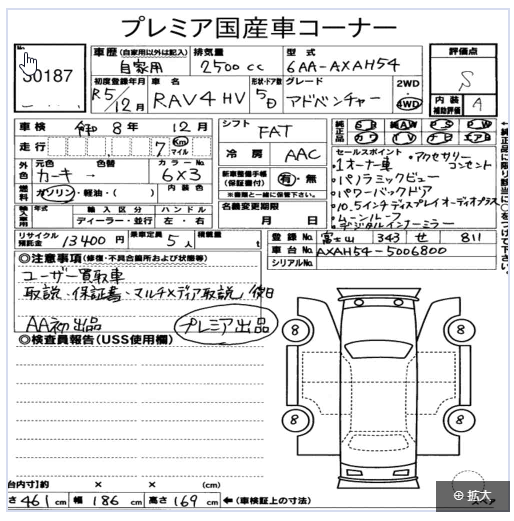 プレミア国産車コーナー
No. 50187
車歴(自家用以外は記入) 自家用
排気量 2500cc
型式 6AA-AXAH54
評価点 S
初度登録年月 R5/12月
車名 RAV4 HV
形状・ドア数 5D
グレード アドベンチャー
2WD 4WD
内装補助評価 A
車検 令和 8年 12月
シフト FAT
純正品
走行 7 Km マイル
冷房 AAC
外色 元色 カーキ 色替 → カラーNo. 6×3
燃料 ガソリン・軽油・( ) 内装色
新車整備手帳(保証書付) 有・無
※書類と一緒に保管下さい。
セールスポイント
・1オーナー車 ・アクセサリーコンセント
・パノラミックビュー
・パワーバックドア
・10.5インチディスプレイオーディオプラス
・ムーンルーフ
・デジタルインナーミラー
輸入車用 年式 輸入区分 ディーラー・並行 ハンドル 左・右
名義変更期限 月 日
リサイクル預託金 13400円
乗車定員 5人
積載量 t
登録No. 富士山 343 せ 811
車台No. AXAH54-5006800
シリアルNo.
◎注意事項(修復・不具合箇所および状態等)
ユーザー買取車
取説・保証書・マルチメディア取説/後日
AA初出品 プレミア出品
◎検査員報告(USS使用欄)
8 8
8 8
スペア
台内寸)約 × × (cm)
さ 461 cm 幅 186 cm 高さ 169 cm ←(車検証上の寸法)
拡大